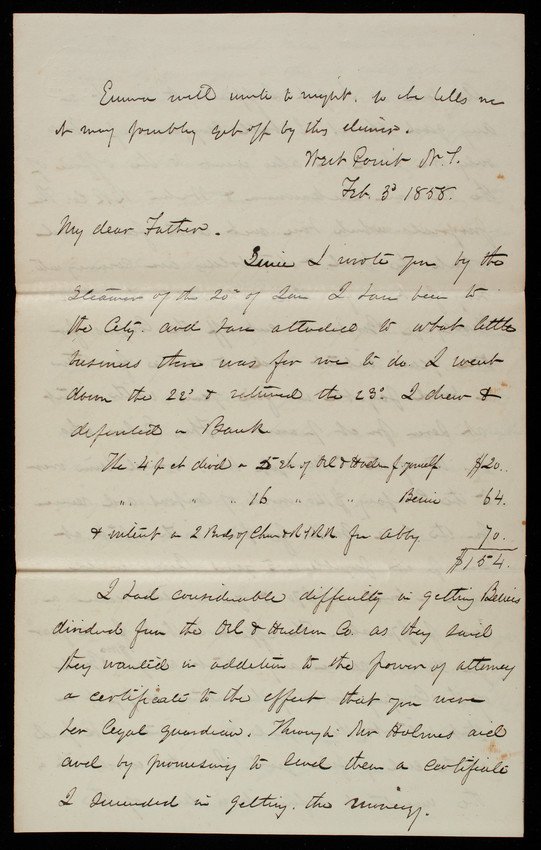 Emma will write to night. so she tells me
it may possibly get off by this steamer.
West Point N.Y.
Feb. 3d 1858.
My dear Father.
Since I wrote you by the
steamer of the 20th of Jan I have been to
the City. and have attended to what little
business there was for me to do. I went
down the 22d & returned the 23d. I drew &
deposited in Bank
The 4 p ct divd on 5 sh of Del & Hudson for yourself $20..
" " " 16 " " Bessie 64.
& interest on 2 Bnds of RR for Abby 70.
$154.
I had considerable difficulty in getting Bessies
dividend from the Del & Hudson Co. as they said
they wanted in addition to the power of attorney
a certificate to the effect that you were
her legal guardian. Through Mr Holmes aid
and by promising to send them a certificate
I succeeded in getting. the money.